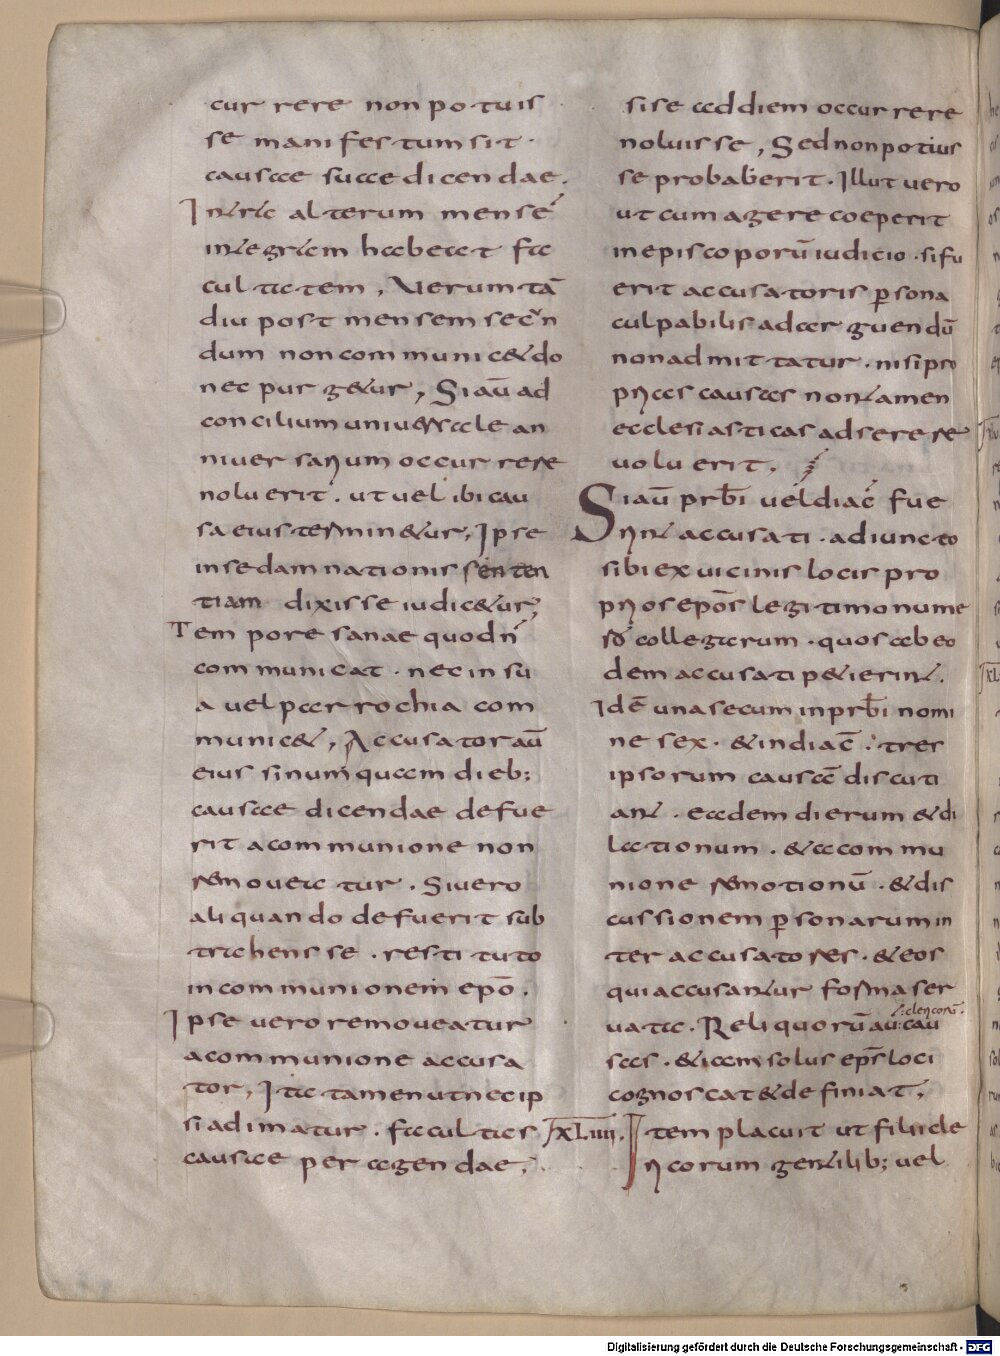 currere non potuis
se manifestum sit.
causae suae dicendae.
Intra alterum mense
integram habeat fa
cultatem, Verumtā
diu post mensem secun
dum non communicando
nec purgetur, Si aū ad
concilium universale an
niversarium occurrere
noluerit. ut vel ibi cau
sa eius terminetur, Ipse
in se damnationis senten
tiam dixisse iudicetur,
Tempore sane quod n̄
communicat. nec in su
a vel parrochia com
municet, Accusator aū
eius si numquam dieb;
causae dicendae defue
rit a communione non
removeatur. Si vero
aliquando defuerit sub
trahens se. restituto
in communionem epō.
Ipse vero removeatur
a communione accusa
tor, Ita tamen ut nec ip
si adimatur. facultas
causae peragendae,
si se ad diem occurrere
noluisse, Sed non potuis
se probaberit. Illut vero
ut cum agere coeperit
in episcoporū iudicio. si fu
erit accusatoris psona
culpabilis ad arguendū
non admittatur. nisi pro
prias causas non tamen
ecclesiasticas adserere
voluerit.
Si aū prbī vel diac̄ fue
rint accusati. adiuncto
sibi ex vicinis locis pro
prios epōs legitimo nume
ro collegarum. quos ab eo
dem accusati petierint.
Idē una secum in prbī nomi
ne sex. & in diac̄. tres
ipsorum causā discuti
ant. eadem dierum & di
lationum. & a commu
nione remotionū. & dis
cussionem psonarum in
ter accusatores. & eos
qui accusantur forma ser
vata. Reliquorū aū cau
i. clericorū.
sas. & iam solus eps̄ loci
cognoscat & definiat,
XLIIII. Item placuit ut filii cle
ricorum gentilib; vel
Digitalisierung gefördert durch die Deutsche Forschungsgemeinschaft - DFG